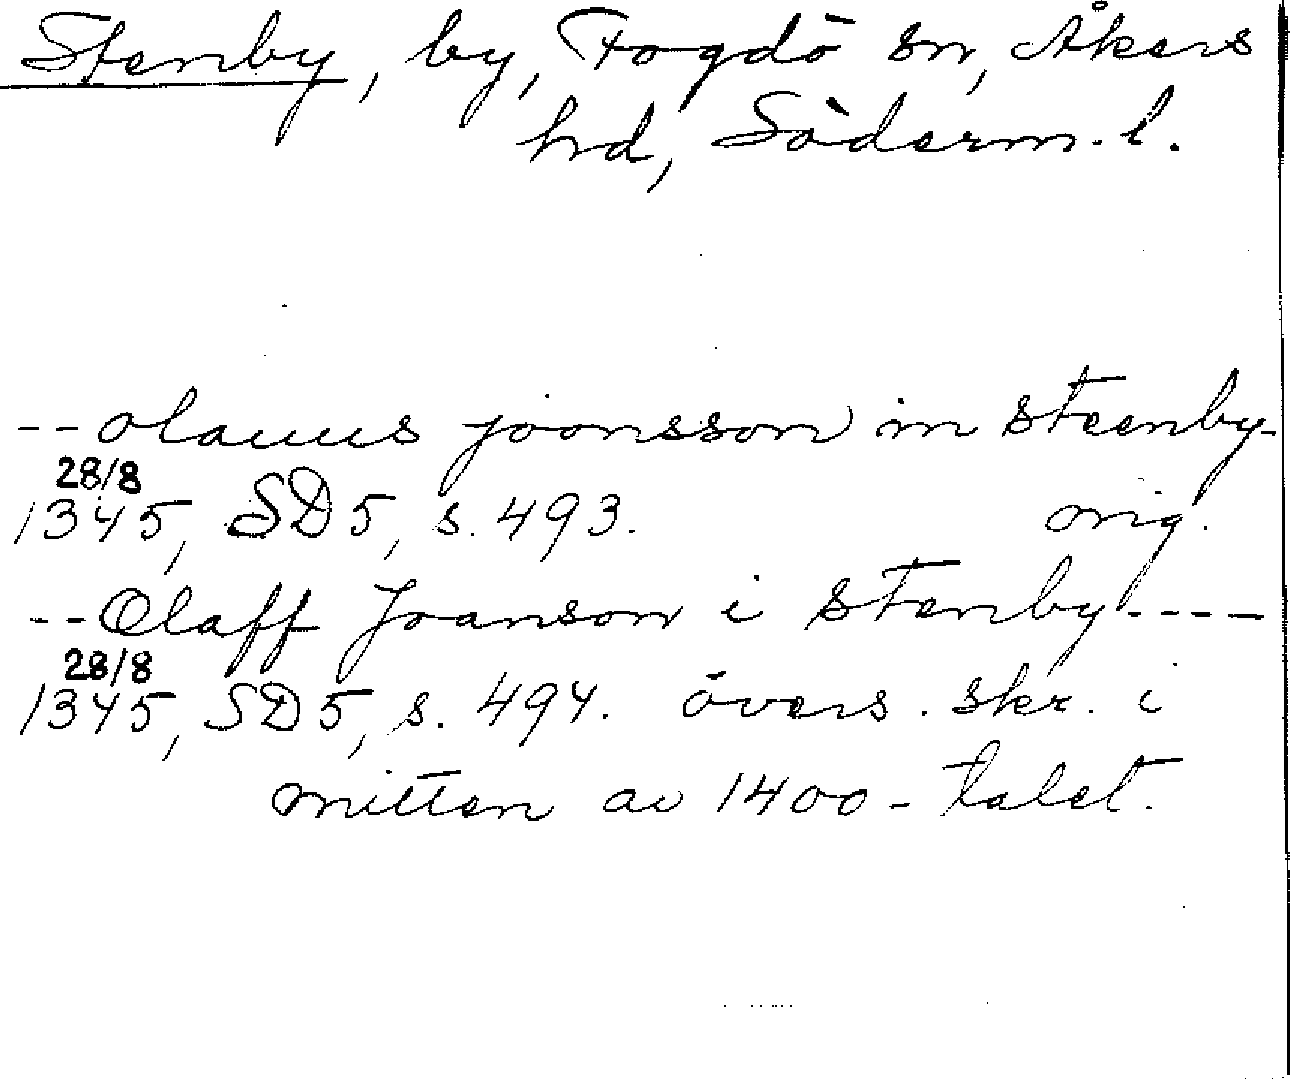 Stenby, by, Fogdö sn, Åkers
hd, Söderm. l.
-- olauus joonsson in steenby-
28/8
1345, SD 5, s. 493. orig.
-- Olaff Joanson i stenby ----
28/8
1345, SD 5, s. 494. övers. skr. i
mitten av 1400-talet.